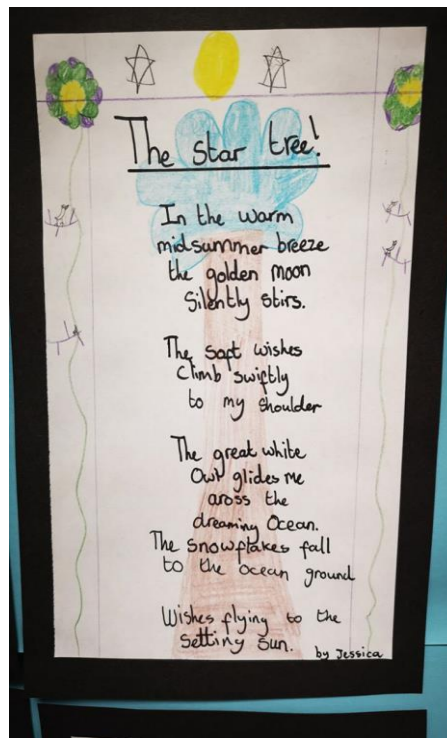 The star tree!
In the warm
midsummer breeze
the golden moon
Silently stirs.
The soft wishes
Climb swiftly
to my shoulder
The great white
Owl glides me
aross the
dreaming Ocean.
The snowflakes fall
to the ocean ground
Wishes flying to the
setting sun.
by Jessica